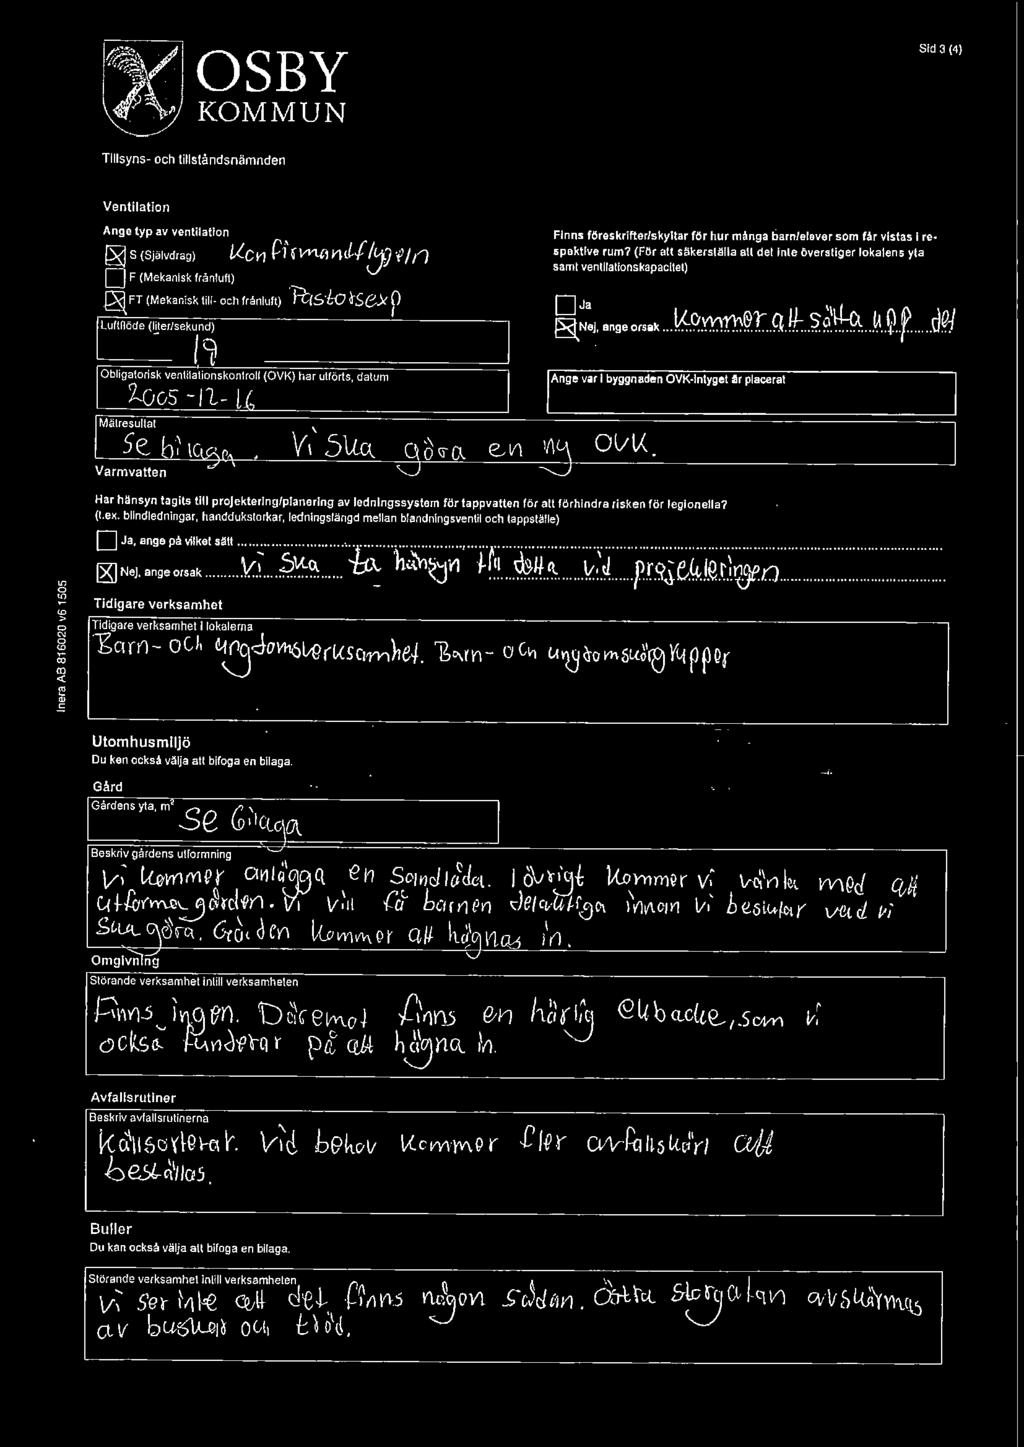 OSBY
KOMMUN
Sid 3 (4)
Tillsyns- och tillståndsnämnden
Ventilation
Ange typ av ventilation
S (Självdrag) Konfirmandflygeln
F (Mekanisk frånluft)
FT (Mekanisk till- och frånluft) Pastorsexp
Finns föreskrifter/skyltar för hur många barn/elever som får vistas i re-
spektive rum? (För att säkerställa att det inte överstiger lokalens yta
samt ventilationskapacitet)
Ja
Nej, ange orsak Kommer att sätta upp det
Luftflöde (liter/sekund)
19
Obligatorisk ventilationskontroll (OVK) har utförts, datum
2005-12-16
Ange var i byggnaden OVK-intyget är placerat
Mätresultat
Se bilaga. Vi ska göra en ny OVK.
Varmvatten
Har hänsyn tagits till projektering/planering av ledningssystem för tappvatten för att förhindra risken för legionella?
(t.ex. blindledningar, handdukstorkar, ledningslängd mellan blandningsventil och tappställe)
Ja, ange på vilket sätt
Nej, ange orsak Vi ska ta hänsyn till detta vid projekteringen
Tidigare verksamhet
Tidigare verksamhet i lokalerna
Barn- och ungdomsverksamhet. Barn- och ungdomskörgrupper
Inera AB 816020 v6 1505
Utomhusmiljö
Du kan också välja att bifoga en bilaga.
Gård
Gårdens yta, m²
Se bilaga
Beskriv gårdens utformning
Vi kommer anlägga en Sandlåda. I övrigt kommer vi vänta med att
utforma gården. Vi vill få barnen delaktiga innan vi beslutar vad vi
Ska göra. Gården kommer att hägnas in.
Omgivning
Störande verksamhet intill verksamheten
Finns ingen. Däremot finns en härlig ekbacke, som vi
också funderar på att hägna in.
Avfallsrutiner
Beskriv avfallsrutinerna
Källsorterar. Vid behov kommer fler avfallskärl att
beställas.
Buller
Du kan också välja att bifoga en bilaga.
Störande verksamhet intill verksamheten
Vi ser inte att det finns någon sådan. Östra Storgatan avskärmas
av buskar och träd.